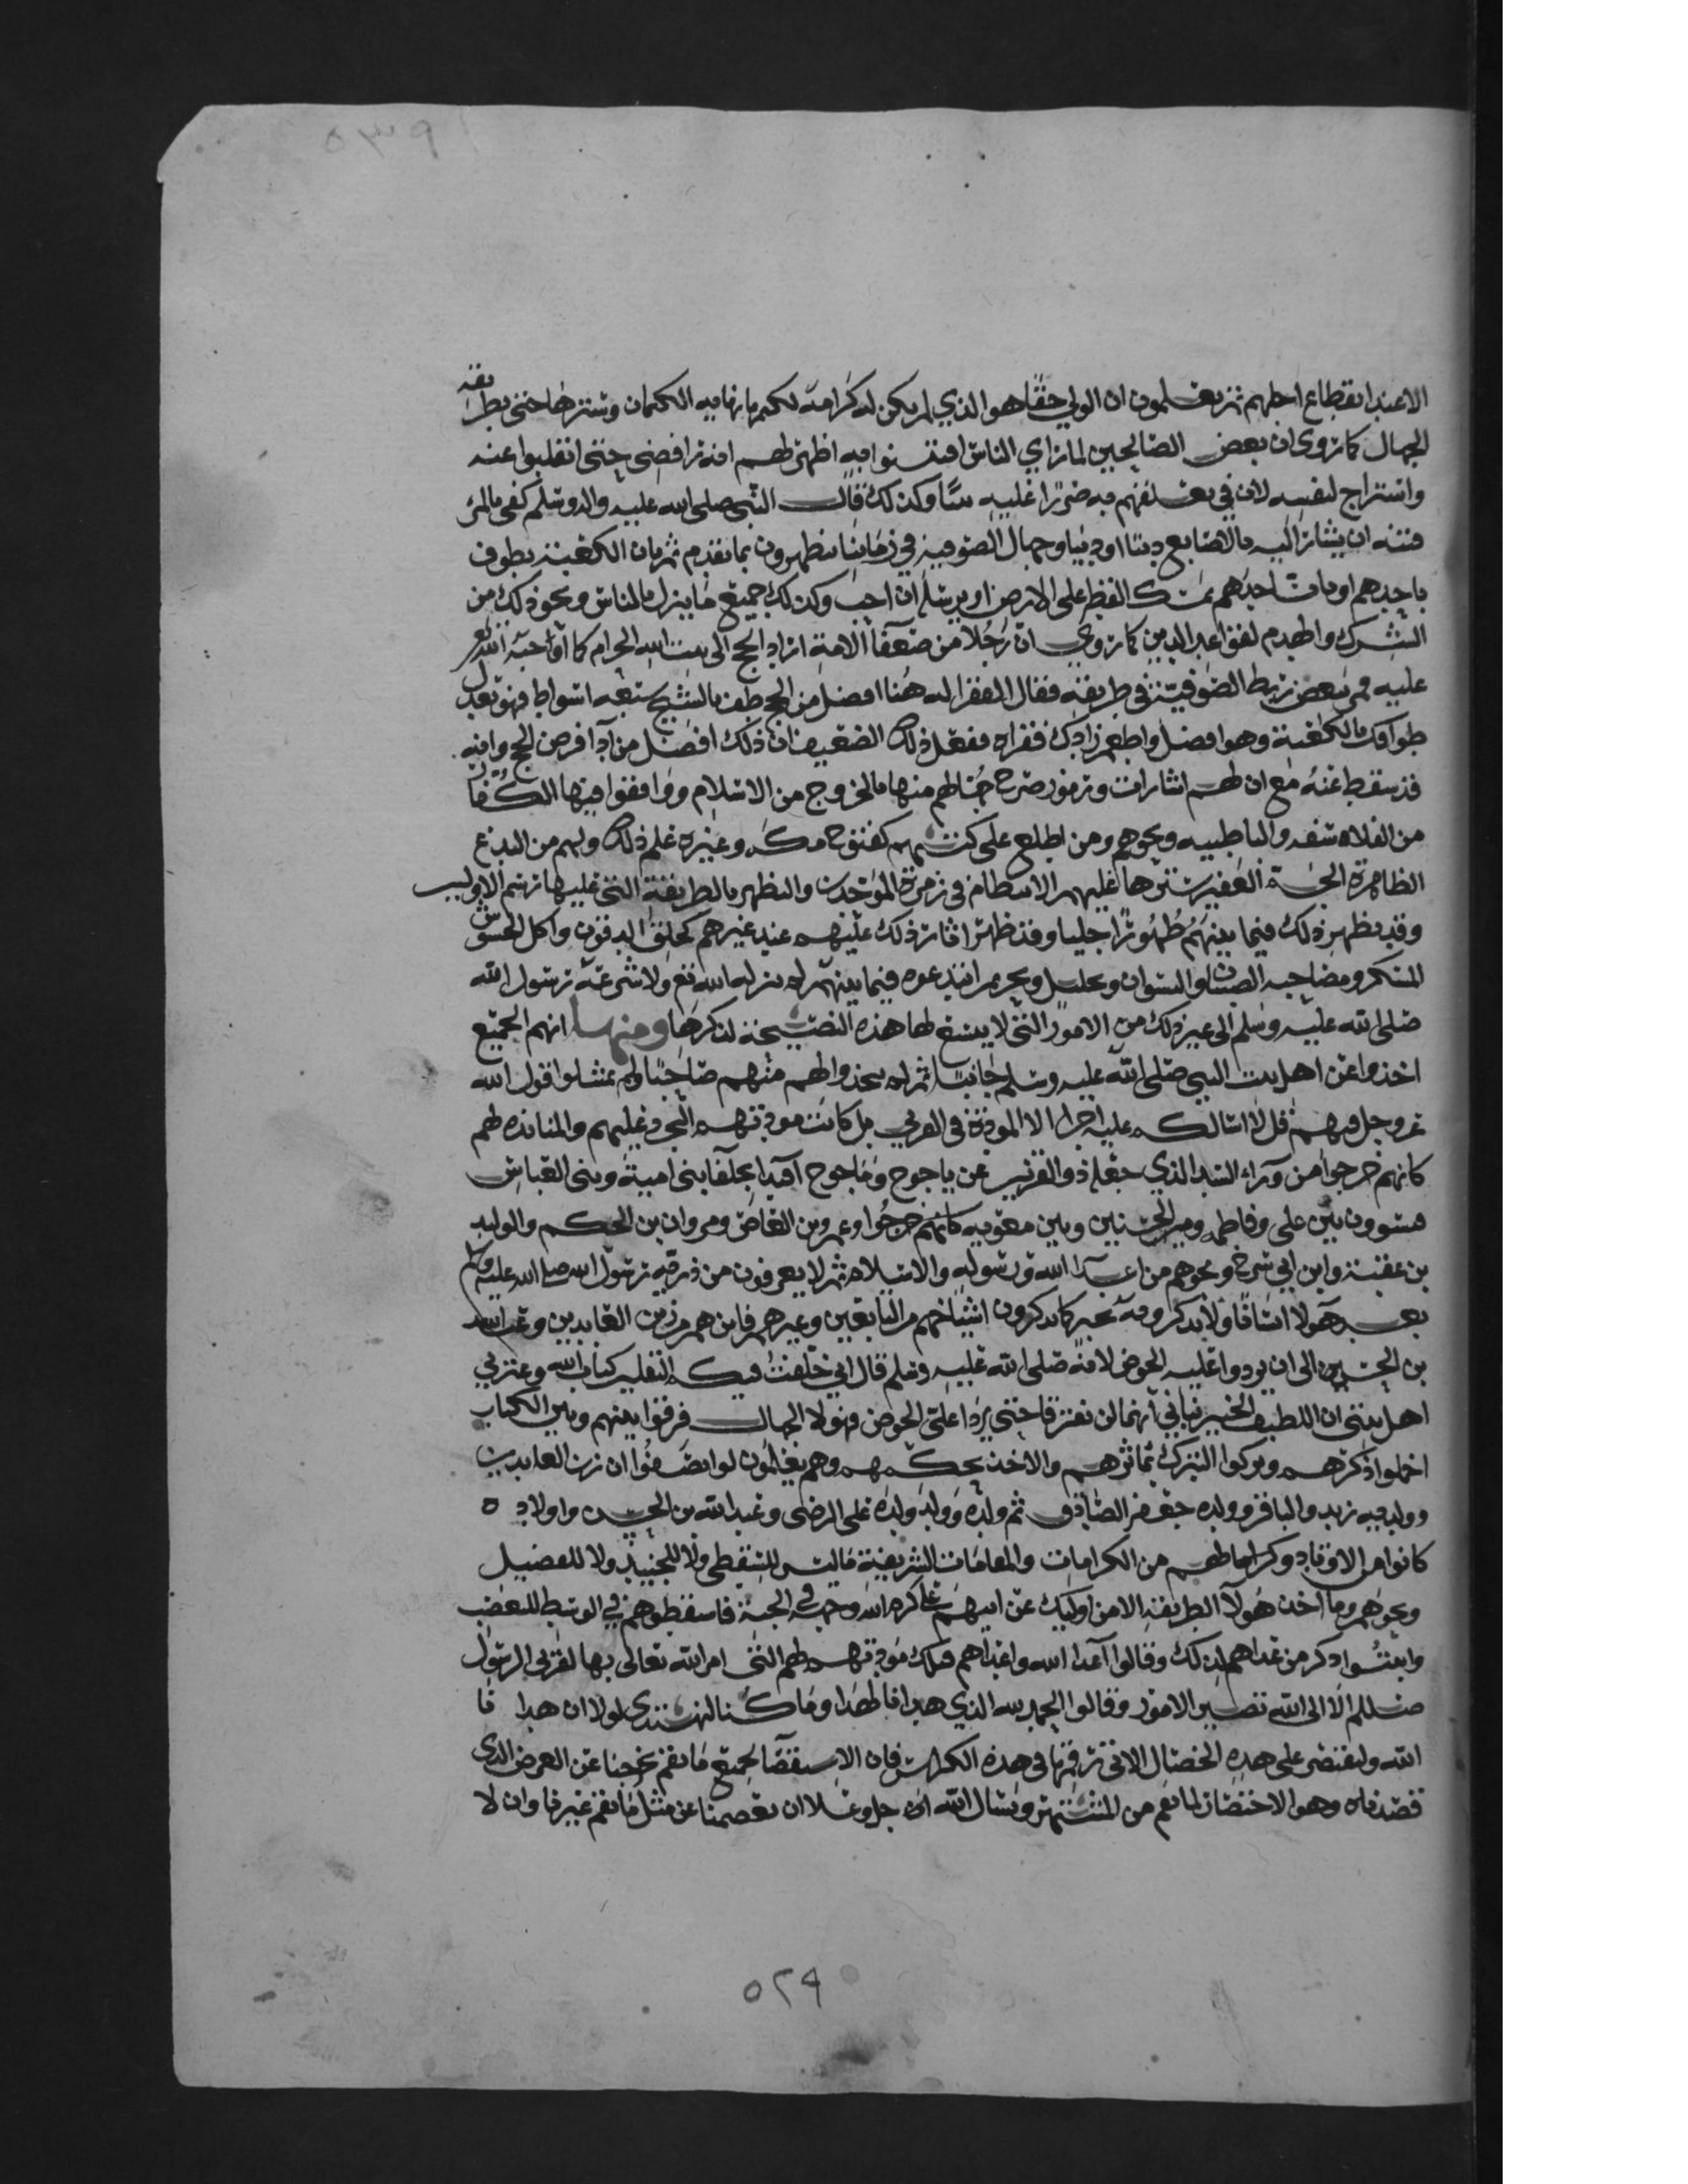 الا عند انقطاع اجلهم ثم يعلمون ان الولي حقا هو الذي لم يكن له كرامة لكنه الكتمان وسترها حتى بطرايقه
الجهال كما روى ان بعض الصالحين لما راى الناس افتتنوا فيه اظهر لهم انه رافضى حتى انقلبوا عنه
واستراح لنفسه لان في تعلقهم به ضررا عليه وكذلك قال النبى صلى الله عليه واله وسلم كفى بالمرء
فتنه ان يشار اليه بالاصابع دينا او دنيا وجهال الصوفيه في زماننا يظهرون بما تقدم ثم بان الكعبه يطوف
باحدهم او بان احدهم يمسك القطر على الارض او يرسله ان احب وكذلك جميع ما ينزل بالناس ونحو ذلك من
الشرك والهدم لقواعد الدين كما روي ان رجلا من ضعفا الامة اراد الحج الى بيت الله الحرام كما اوجبه الله
عليه فمر ببعض ربط الصوفية في طريقه فقال الفقرا له هنا افضل من الحج طف بالشيخ سبعه اشواط فهو يعدل
طوافك بالكعبة وهو افضل واطعم زادك فقراه ففعل ذلك الضعيف ان ذلك افضل من ادا فرض الحج وانه
قد سقط عنه مع ان لهم اشارات ورموز صرح جهالهم منها بالخروج من الاسلام ووافقوا فيها الكفار
من الفلاسفه والباطنيه ونحوهم ومن اطلع على كتبهم كفتوح مكه وغيره علم ذلك ولهم من البدع
الظاهرة الجم الغفير سترها عليهم الانتظام في زمرة الموحدين والتظهر بالطريقة التي عليها رسم الاولين
وقد يظهر ذلك فيما بينهم ظهورا جليا وقد ظهر اثار ذلك عليهم عند غيرهم كحلق الدقون واكل الحشيش
المسكر ومصاحبه الصبيان والنسوان وتحليل وتحريم ابتدعوه فيما بينهم لم ينزله الله تع ولا شرعه رسول الله
صلى الله عليه وسلم الى غير ذلك من الامور التي لا يتسع لها هذه النصيحة لذكرها ومنها انهم الجميع
اخذوا عن اهل بيت النبي صلى الله عليه وسلم جانبا ثم لم يتخذوا لهم منهم صاحبا ولم يمتثلوا قول الله
عز وجل فيهم قل لا اسالكم عليه اجرا الا المودة في القربى بل كانت مودتهم التجرؤ عليهم والمنابذه لهم
كانهم خرجوا من وراء السد الذي جعله ذو القرنين عن ياجوج وماجوج بنى امية وبنى العباس
مسوون بين على وفاطمه وبين الحسنين وبين معويه كانهم خرجوا وعمرو بن العاص ومروان بن الحكم والوليد
بن عقبة وابن ابي سرح ونحوهم من اعدا الله ورسوله والاسلام ثم لا يعرفون من ذرية رسول الله صلى الله عليه وسلم
بعد هولا انسانا ولا يذكرونه بخير كما يذكرون اشياخهم من التابعين وغيرهم فاين هم من زين العابدين وعبد الله
بن الحسن الى ان يردوا عليه الحوض لانه صلى الله عليه وسلم قال اني خلفت فيكم الثقلين كتاب الله وعترتي
اهل بيتي ان اللطيف الخبير نباني انهما لن يفترقا حتى يردا علي الحوض فهولا الجهال فرقوا بينهم وبين الكتاب
اخملوا ذكرهم وتركوا التبرك بماثرهم والاخذ بحكمهم وهم يعلمون لو انصفوا ان زين العابدين
وولديه زيد والباقر وولده جعفر الصادق ثم ولده وولد ولده على الرضى وعبدالله بن الحسن واولاده
كانوا من الاوتاد وكراماتهم من الكرامات والمقامات الشريفة ما ليس للسقطى ولا للجنيد ولا للفضيل
ونحوهم وما اخذ هولا الطريقه الا من اولئك عن ابيهم على كرم الله وجهه في الجنة فاسقطوهم في الوسط للبغض
وابتثوا ذكر من عداهم لذلك وقالوا اعدا الله واعداهم فتلك مودتهم لهم التى امر الله تعالى بها لقربى الرسول
صللم الا الى الله تصير الامور وقالوا الحمد لله الذي هدانا لهذا وما كنا لنهتدى لولا ان هدانا
الله ولنقتصر على هذه الخصال الاتى رقمها في هذه الكراس فان الاستقصا لجميع ما نقم يخرجنا عن الغرض الذى
قصدناه وهو الاختصار لما نعم من المشتهر ونسال الله ان جل وعلا ان يعصمنا عن مثل ما نقم غيرنا وان لا
٥٢٩